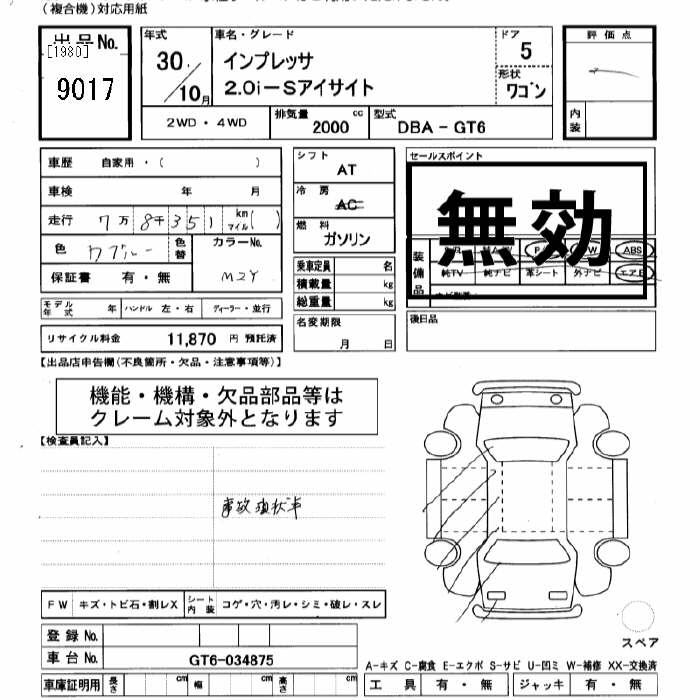 (複合機)対応用紙
出品No.
[1980]
9017
年式 30 10月
車名・グレード
インプレッサ
2.0i-Sアイサイト
ドア 5
形状 ワゴン
評価点
内装
2WD・4WD
排気量 2000 cc
型式 DBA-GT6
車歴 自家用・( )
車検 年 月
走行 7万8千351 km マイル( )
色 ワブルー 色替 カラーNo. M2Y
保証書 有・無
モデル年式 年 ハンドル 左・右 ディーラー・並行
リサイクル料金 11,870 円 預託済
シフト AT
冷房 AC
燃料 ガソリン
乗車定員 名
積載量 kg
総重量 kg
名変期限 月 日
セールスポイント
無効
装備品
ABS
純TV 純ナビ 革シート 外ナビ エアB
後日品
【出品店申告欄(不良箇所・欠品・注意事項等)】
機能・機構・欠品部品等は
クレーム対象外となります
【検査員記入】
事故現状車
FW キズ・トビ石・割レX シート内装 コゲ・穴・汚レ・シミ・破レ・スレ
登録No.
車台No. GT6-034875
車庫証明用 長さ cm 幅 cm 高さ cm
スペア
A-キズ C-腐食 E-エクボ S-サビ U-凹ミ W-補修 XX-交換済
工具 有・無 ジャッキ 有・無